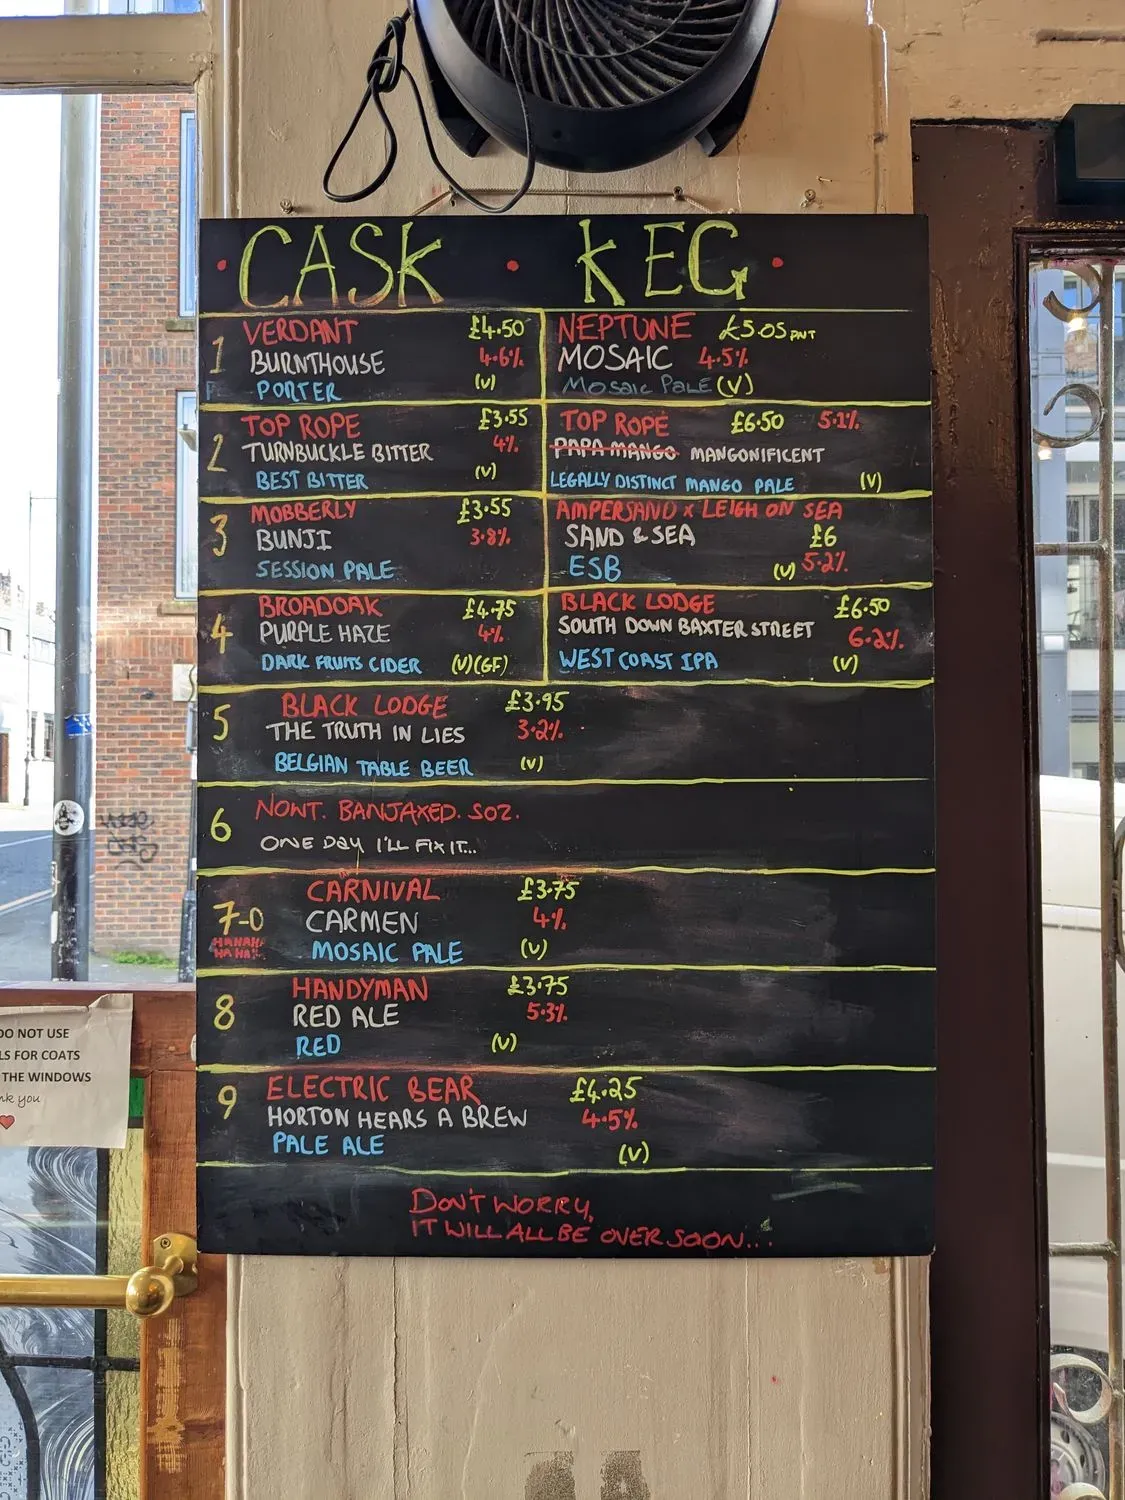 CASK KEG
1 VERDANT £4.50
BURNTHOUSE 4.6%
PORTER (V)
NEPTUNE £5.05 PINT
MOSAIC 4.5%
MOSAIC PALE (V)
2 TOP ROPE £3.55
TURNBUCKLE BITTER 4%
BEST BITTER (V)
TOP ROPE £6.50 5.1%
PAPA MANGO MANGONIFICENT
LEGALLY DISTINCT MANGO PALE (V)
3 MOBBERLY £3.55
BUNJI 3.8%
SESSION PALE
AMPERSAND x LEIGH ON SEA
SAND & SEA £6
ESB (V) 5.2%
4 BROADOAK £4.75
PURPLE HAZE 4%
DARK FRUITS CIDER (V)(GF)
BLACK LODGE £6.50
SOUTH DOWN BAXTER STREET 6.2%
WEST COAST IPA (V)
5 BLACK LODGE £3.95
THE TRUTH IN LIES 3.2%
BELGIAN TABLE BEER (V)
6 NOWT. BANJAXED. SOZ.
ONE DAY I'LL FIX IT...
7-0 CARNIVAL £3.75
CARMEN 4%
HAHAHA
HA HA!
MOSAIC PALE (V)
8 HANDYMAN £3.75
RED ALE 5.3%
RED (V)
9 ELECTRIC BEAR £4.25
HORTON HEARS A BREW 4.5%
PALE ALE (V)
DON'T WORRY,
IT WILL ALL BE OVER SOON...
DO NOT USE
LS FOR COATS
THE WINDOWS
nk you